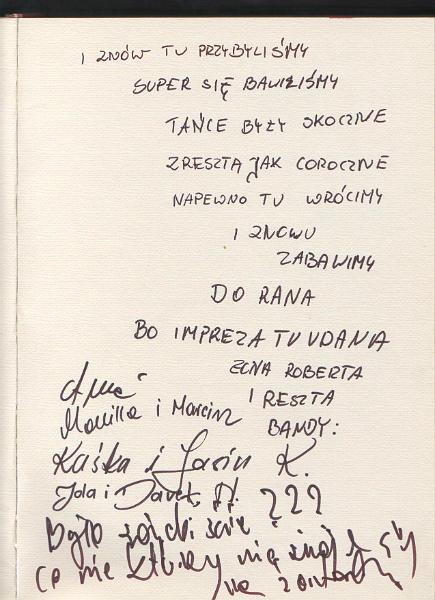 I ZNÓW TU PRZYBYLIŚMY
SUPER SIĘ BAWILIŚMY
TAŃCE BYŁY SKOCZNE
ZRESZTĄ JAK COROCZNE
NAPEWNO TU WRÓCIMY
I ZNOWU
ZABAWIMY
DO RANA
BO IMPREZA TU UDANA
ŻONA ROBERTA
I RESZTA
BANDY:
i Marcin
Kaśka i Jacin K.
Jola i Darek ???
Było
co nie którzy nie
na